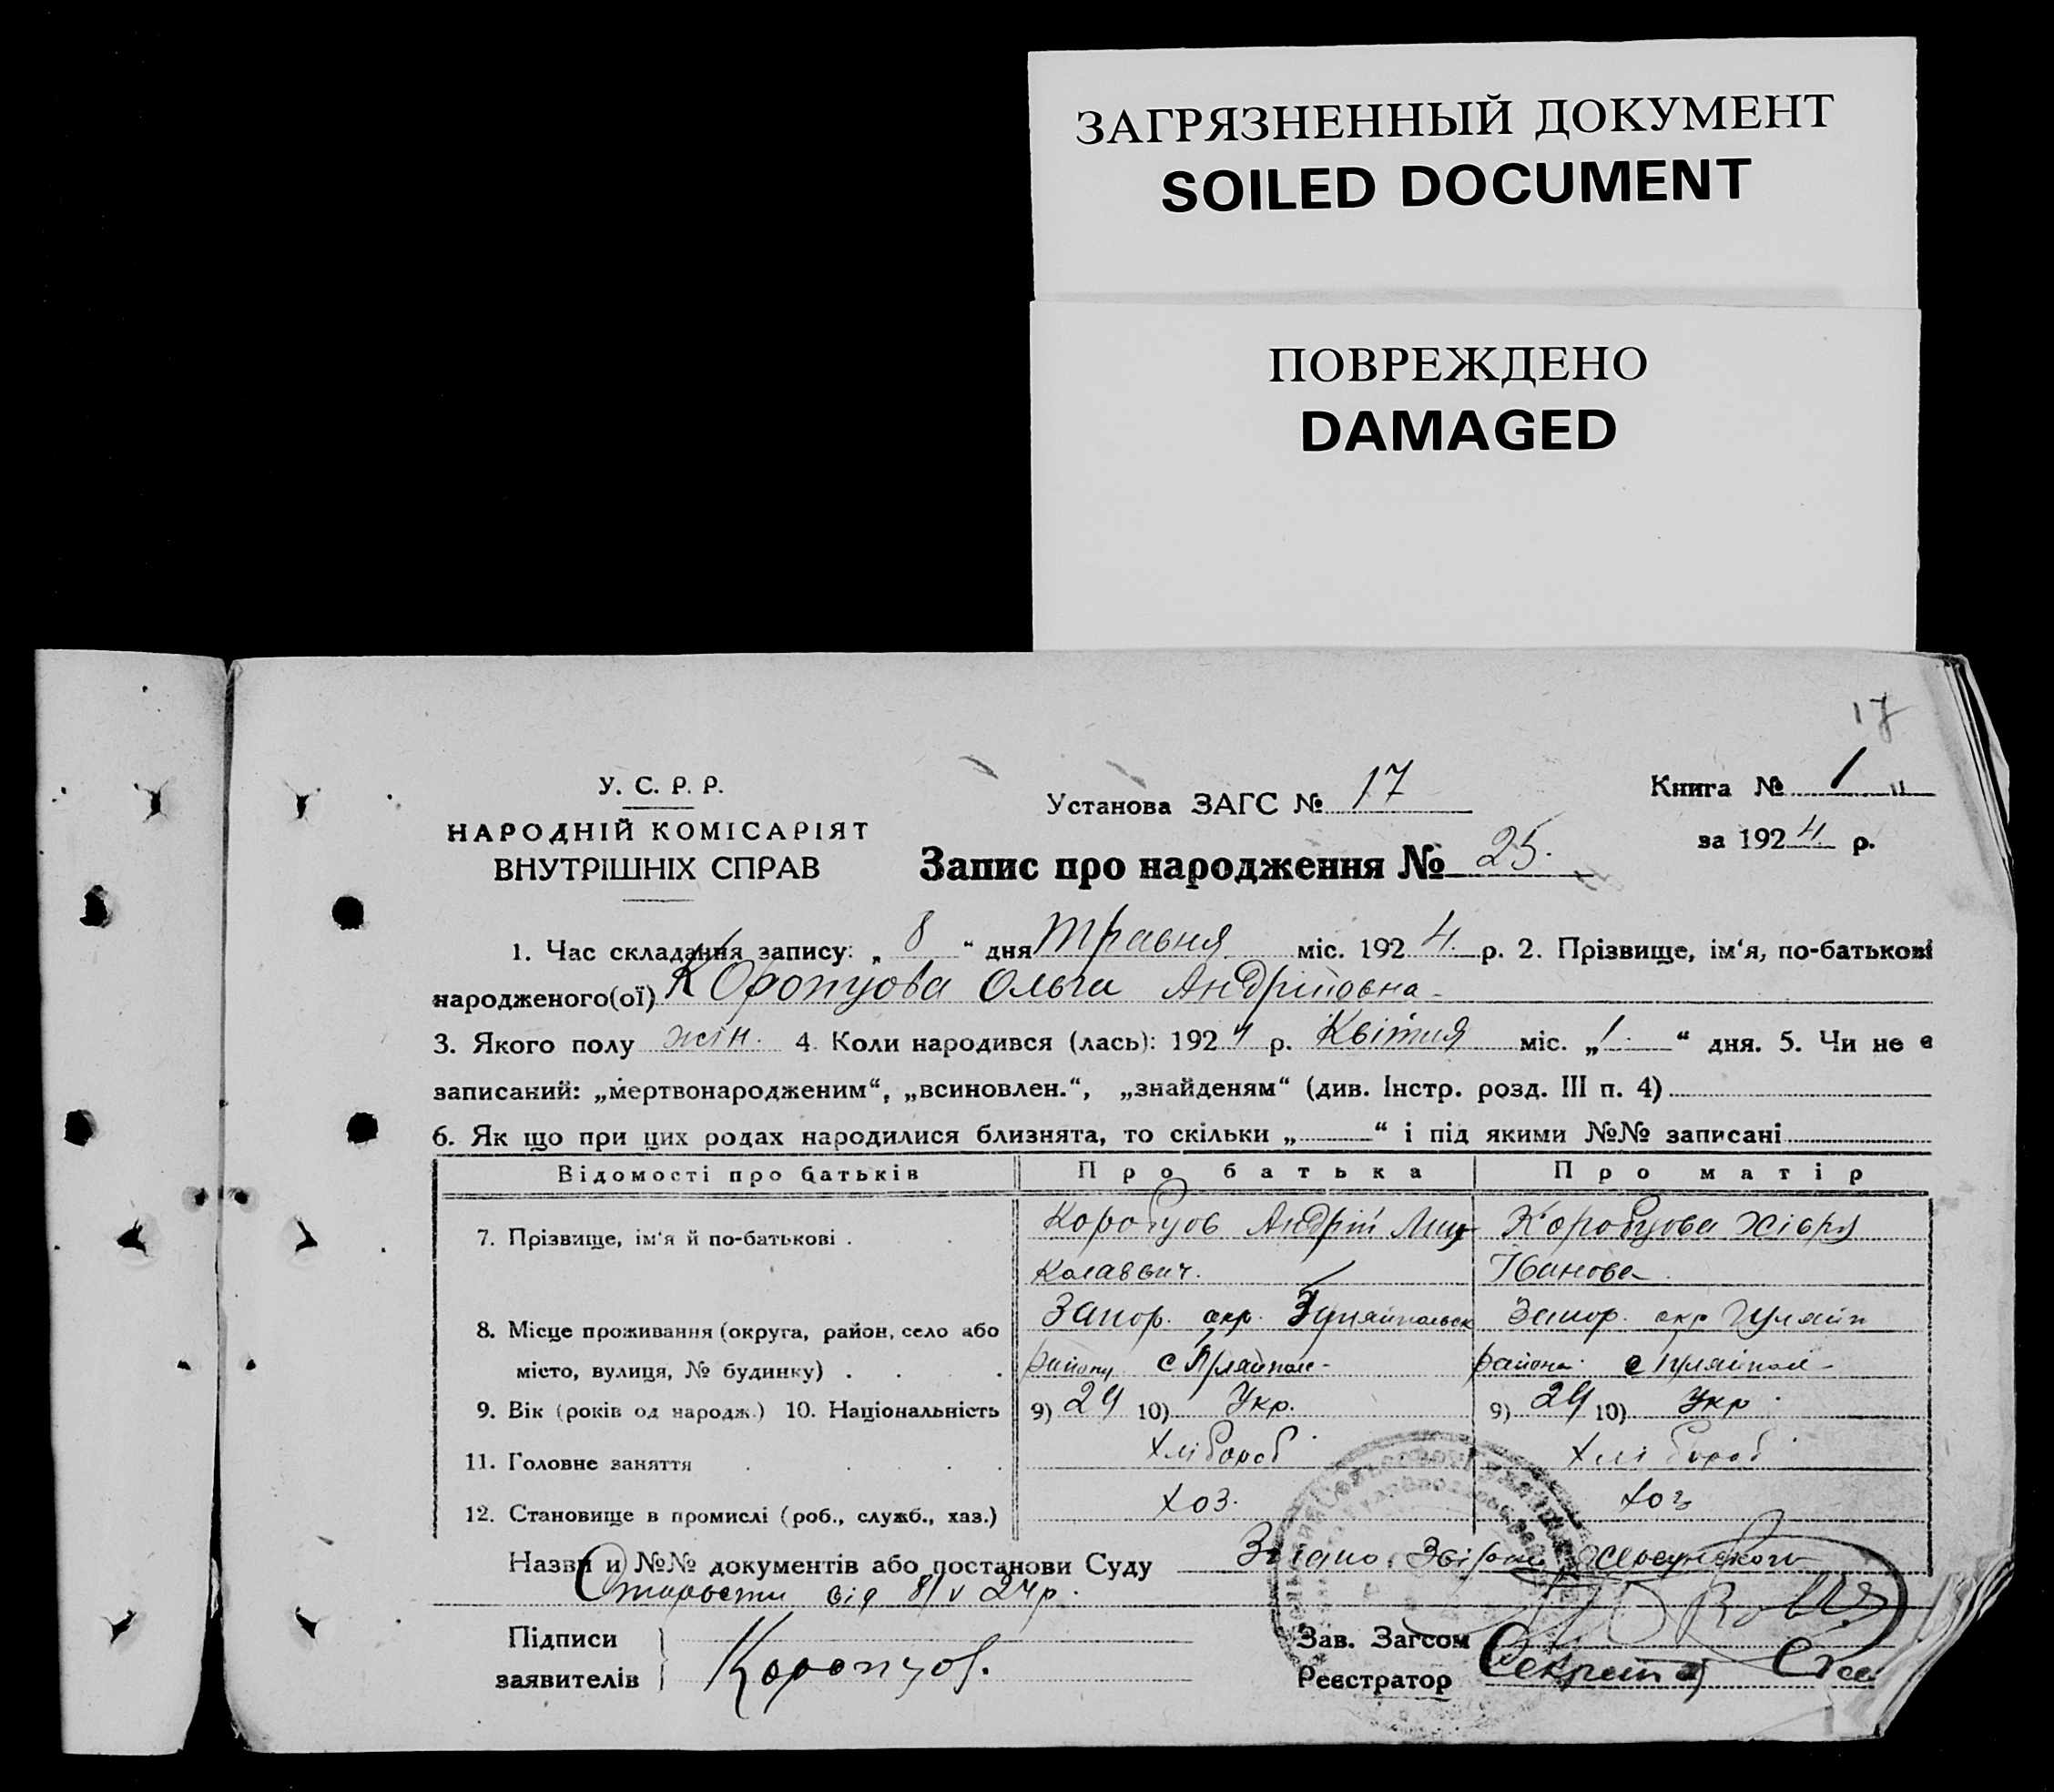 ЗАГРЯЗНЕННЫЙ ДОКУМЕНТ
SOILED DOCUMENT
ПОВРЕЖДЕНО
DAMAGED
17
У. С. Р. Р.
НАРОДНІЙ КОМІСАРІЯТ
ВНУТРІШНІХ СПРАВ
Установа ЗАГС № 17
Книга № 1
за 1924 р.
Запис про народження № 25.
1. Час складання запису: „ 8 “ дня Травня міс. 1924. р. 2. Прізвище, ім‘я, по-батькові
народженого(ої) Коропцова Ольга Андріївна
3. Якого полу жін. 4. Коли народився (лась): 1924 р. Квітня міс. „1.“ дня. 5. Чи не є
записаний: „мертвонародженим“, „всиновлен.“, „знайденям“ (див. Інстр. розд. III п. 4)
6. Як що при цих родах народилися близнята, то скільки „ “ і під якими №№ записані
Відомості про батьків Про батька Про матір
7. Прізвище, ім‘я й по-батькові . Коробцов Андрій Мик Коробцова Хівря
колаевич. Іванова
8. Місце проживання (округа, район, село або Запор. окр. Гуляйпольск Запор. окр Гуляйп
місто, вулиця, № будинку) . . . району с Гуляйполе района с Гуляйполе
9. Вік (років од народж.) 10. Національність 9) 24 10) Укр. 9) 24 10) Укр
11. Головне заняття хлібороб хлібороб
12. Становище в промислі (роб., служб., хаз.) хоз. хоз
Назви и №№ документів або постанови Суду Згідно
від 8/V 24 р.
Підписи
заявителів Коропцов.
Зав. Загсом
Реєстратор Секретар